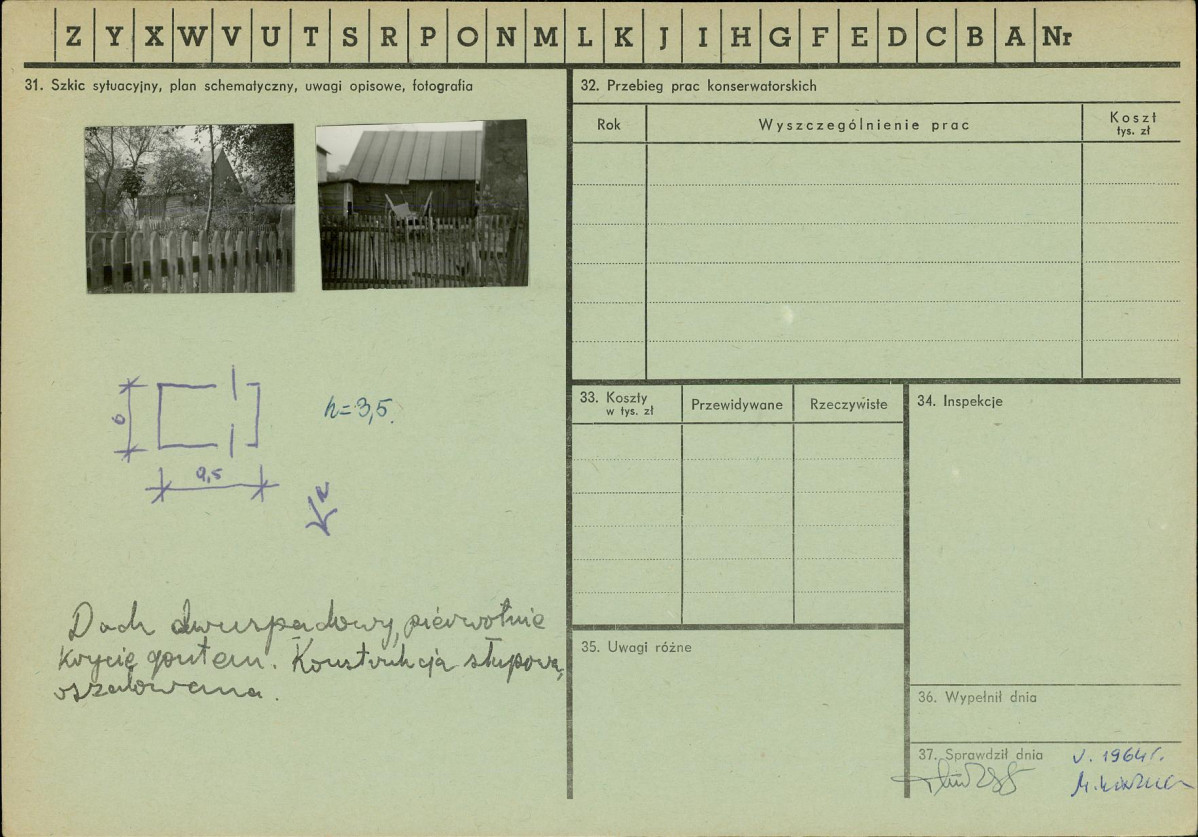 Z Y X W V U T S R P O N M L K J I H G F E D C B A Nr
31. Szkic sytuacyjny, plan schematyczny, uwagi opisowe, fotografia
6
9,5
h=3,5.
N
Dach dwuspadowy, pierwotnie
krycie gontem. Konstrukcja słupowa,
oszalowana.
32. Przebieg prac konserwatorskich
Rok Wyszczególnienie prac Koszt
tys. zł
33. Koszty
w tys. zł
Przewidywane Rzeczywiste
34. Inspekcje
35. Uwagi różne
36. Wypełnił dnia
37. Sprawdził dnia
V. 1964 r.